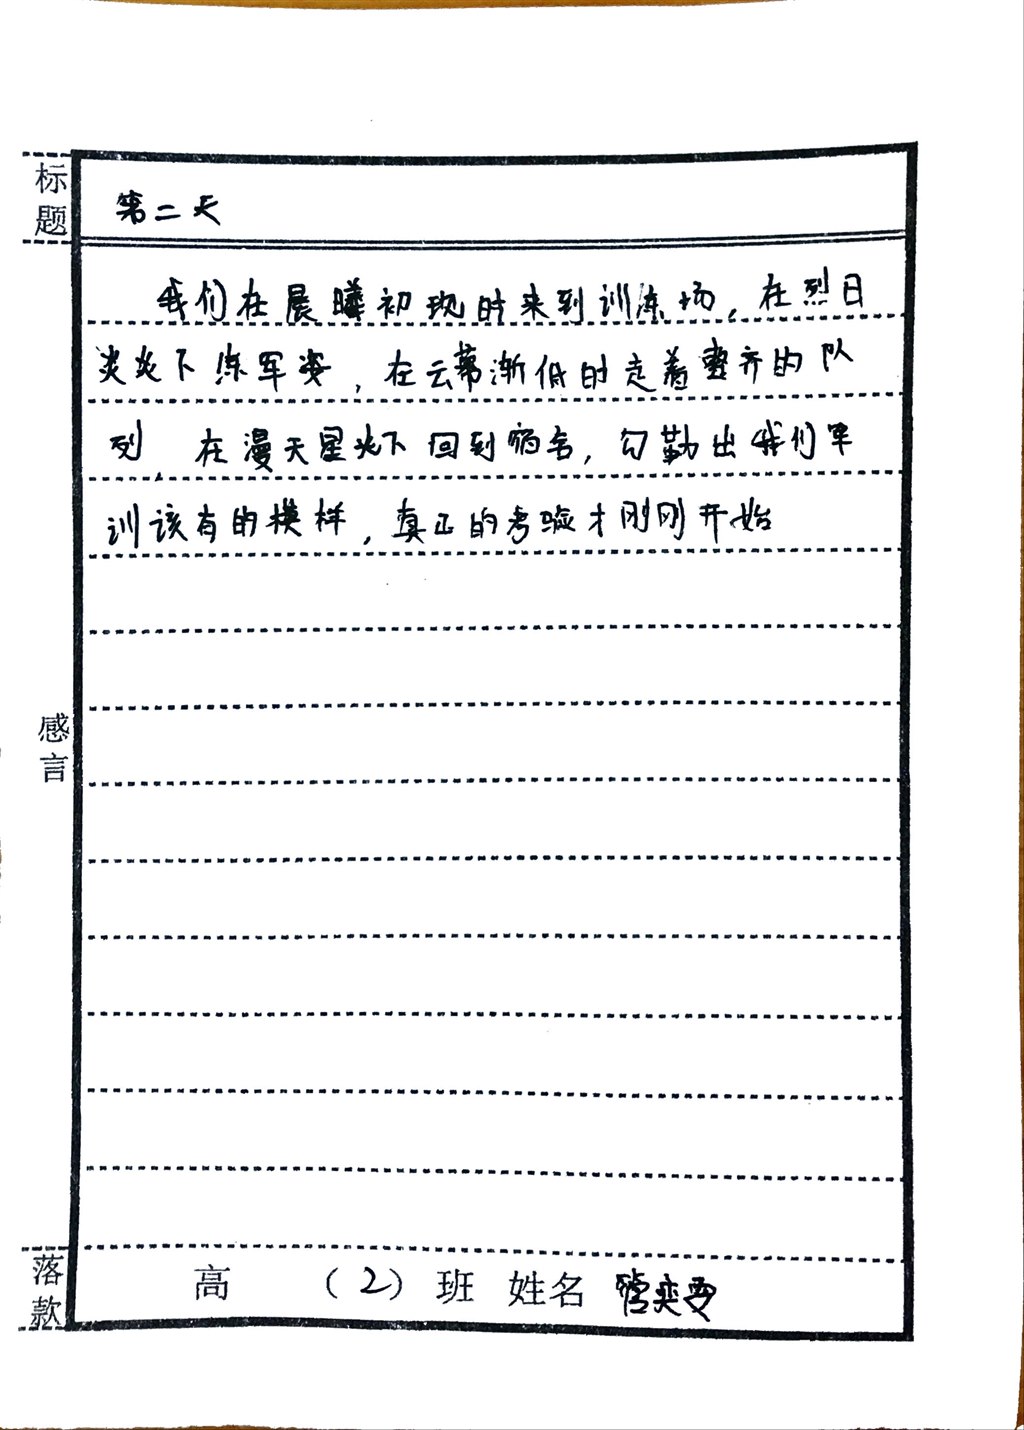 标题
第二天
我们在晨曦初现时来到训练场，在烈日
炎炎下练军姿，在云幕渐低时走着整齐的队
列，在漫天星光下回到宿舍，勾勒出我们军
训该有的模样，真正的考验才刚刚开始
感言
落款
高 （2）班 姓名 管奕